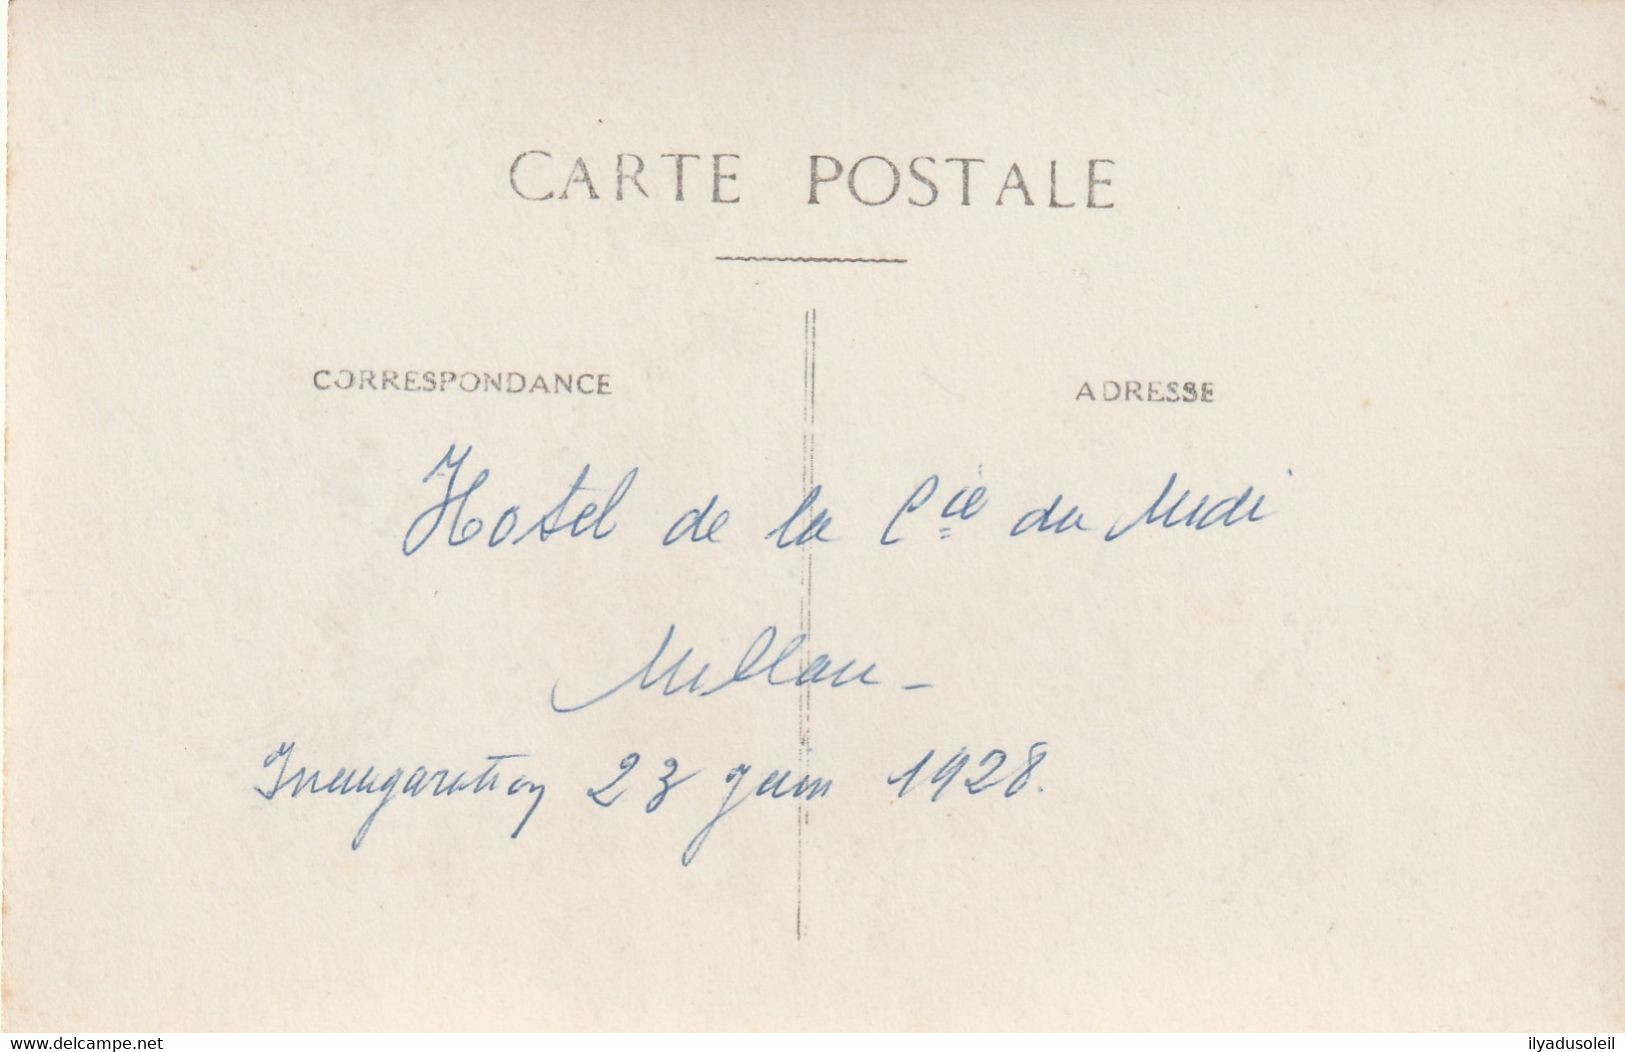 CARTE POSTALE
CORRESPONDANCE
ADRESSE
Hotel de la Cie du Midi
Millau -
Inauguration 23 juin 1928.
www.delcampe.net
ilyadusoleil